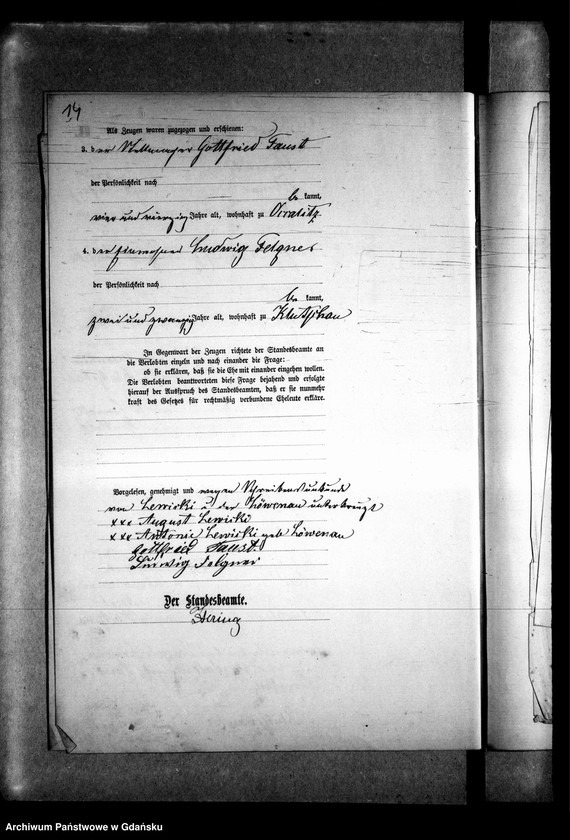 14
Als Zeugen waren zugezogen und erschienen:
3. der Stellmacher Gottfried Faust
der Persönlichkeit nach
be kannt,
vier und vierzig Jahre alt, wohnhaft zu
4. der Einwohner Ludwig Felgner
der Persönlichkeit nach
be kannt,
zwei und zwanzig Jahre alt, wohnhaft zu Klutschau
In Gegenwart der Zeugen richtete der Standesbeamte an
die Verlobten einzeln und nach einander die Frage:
ob sie erklären, daß sie die Ehe mit einander eingehen wollen.
Die Verlobten beantworteten diese Frage bejahend und erfolgte
hierauf der Ausspruch des Standesbeamten, daß er sie nunmehr
kraft des Gesetzes für rechtmäßig verbundene Eheleute erkläre.
Vorgelesen, genehmigt und wegen Schreibensunkunde
von Lewicki u. der Löwenau unterkreuzt
xxx August Lewicki
xxx Antonie Lewicki geb Löwenau
Gottfried Faust.
Ludwig Felgner
Der Standesbeamte.
Hering
Archiwum Państwowe w Gdańsku